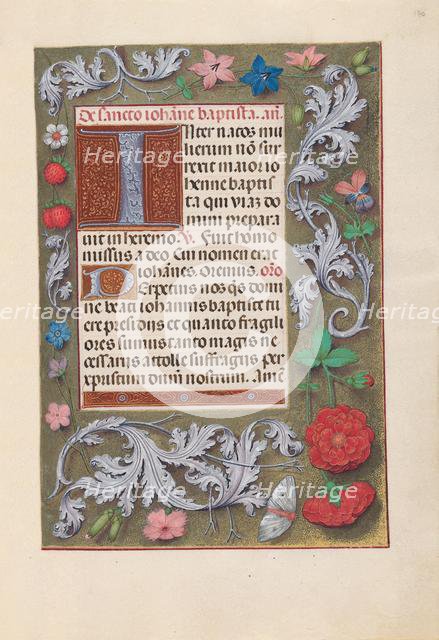 De sancto iohāne baptista. añ.
Inter natos mu
lierum nō sur
rexit maior io
henne baptis
ta qui viaz do
mini prepara
uit in heremo. V. Fuit homo
missus a deo Cui nomen erat
iohānes. Oremus. orō
Perpetuis nos qs domi
ne beati iohannis baptiste tu
ere presidijs et quanto fragili
ores sumus tanto magis ne
cessarijs attolle suffragijs per
xp̄istum dnm nostrum. Amē
Heritage
Heritage
Heritage
Heritage
Heritage
Heritage
Heritage
Heritage
Heritage